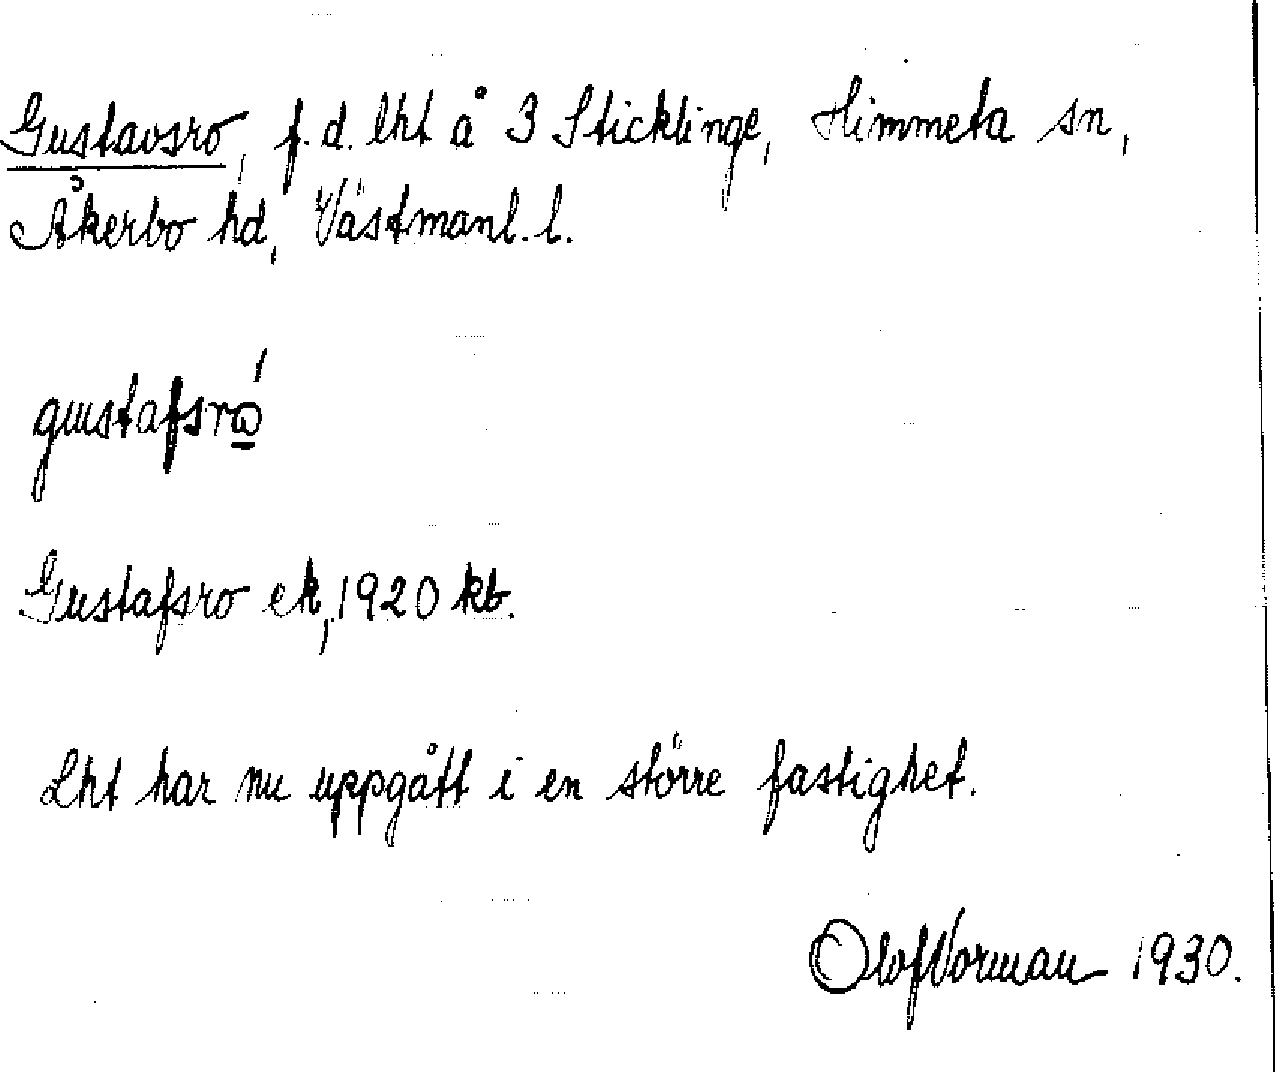 Gustavsro, f.d. lht å 3 Sticklinge, Himmeta sn,
Åkerbo hd, Västmanl. l.
gustafsrώ̲
Gustafsro ek, 1920 kb.
Lht har nu uppgått i en större fastighet.
Olof Norman 1930.